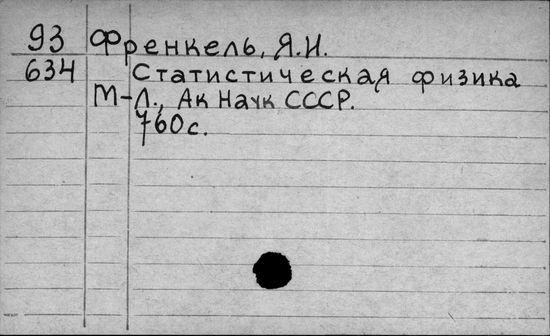 93 Френкель, Я.И.
634 Статистическая физика
М-Л., Ак Наук СССР.
760с.